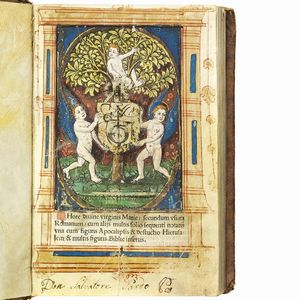 Hore diuine virginis Marie: secundum vsum
Romanum: cum alijs multis folio sequenti notatis
vna cum figuris Apocalipsis & destructio Hierusa-
lem & multis figuris Biblie insertis.
Don Salvatore